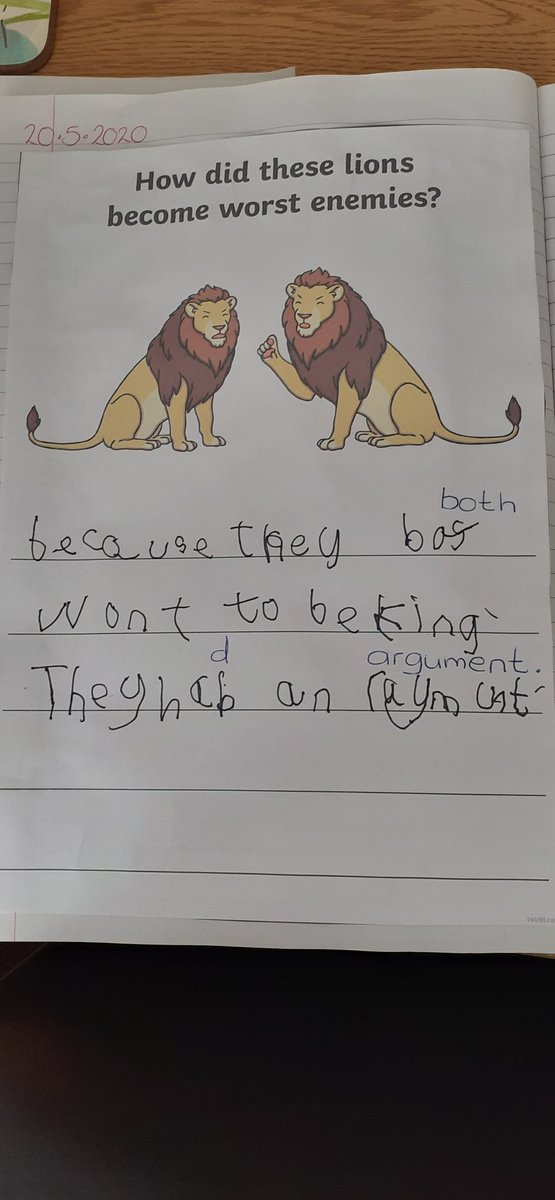 20.5.2020
How did these lions
become worst enemies?
both
because they bos
wont to be king
d argument.
They hab an raymunt